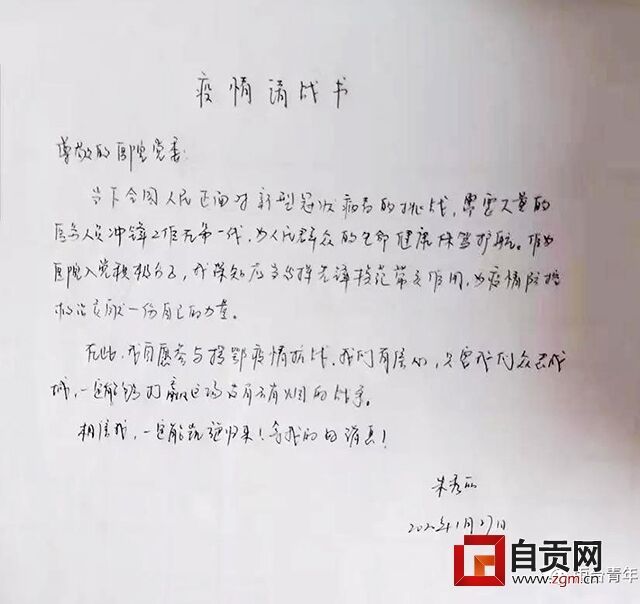 疫情请战书
尊敬的医院党委:
当下全国人民正面对新型冠状病毒的挑战,需要大量的
医务人员冲锋工作在第一线,为人民群众的生命健康保驾护航。作为
医院入党积极分子,我深知应当发挥先锋模范带头作用,为疫情防控
救治贡献一份自己的力量。
在此,我自愿参与援鄂疫情抗战,我们有信心,只要我们众志成
城,一定能够打赢这场没有硝烟的战争。
相信我,一定能凯旋归来!等我的好消息!
朱秀
2020年1月27日
自贡网
www.zgm.cn
台青年